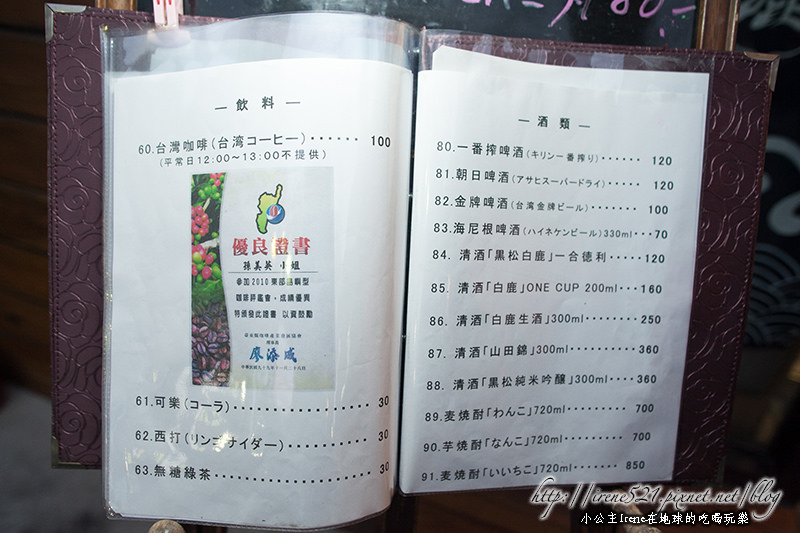 — 飲 料 —
60.台灣咖啡(台湾コーヒー)······ 100
(平常日12:00～13:00不提供)
優良證書
孫美英 小姐
參加2010東部
咖啡評鑑會，成績優異
特頒發此證書 以資鼓勵
理事長
廖添威
61.可樂(コーラ)·················30
62.西打(リンゴサイダー)············30
63.無糖綠茶····················30
— 酒 類 —
80.一番搾啤酒(キリン一番搾り)······ 120
81.朝日啤酒(アサヒスーパードライ)····· 120
82.金牌啤酒(台湾金牌ビール)······· 100
83.海尼根啤酒(ハイネケンビール)330ml···70
84. 清酒「黒松白鹿」一合徳利·····120
85. 清酒「白鹿」ONE CUP 200ml···160
86. 清酒「白鹿生酒」300ml········250
87. 清酒「山田錦」300ml·········360
88. 清酒「黒松純米吟醸」300ml····360
89.麦焼酎「わんこ」720ml········· 700
90.芋焼酎「なんこ」720ml········· 700
91.麦焼酎「いいちこ」720ml······· 850
http://irene521.pixnet.net/blog
小公主Irene在地球的吃喝玩樂